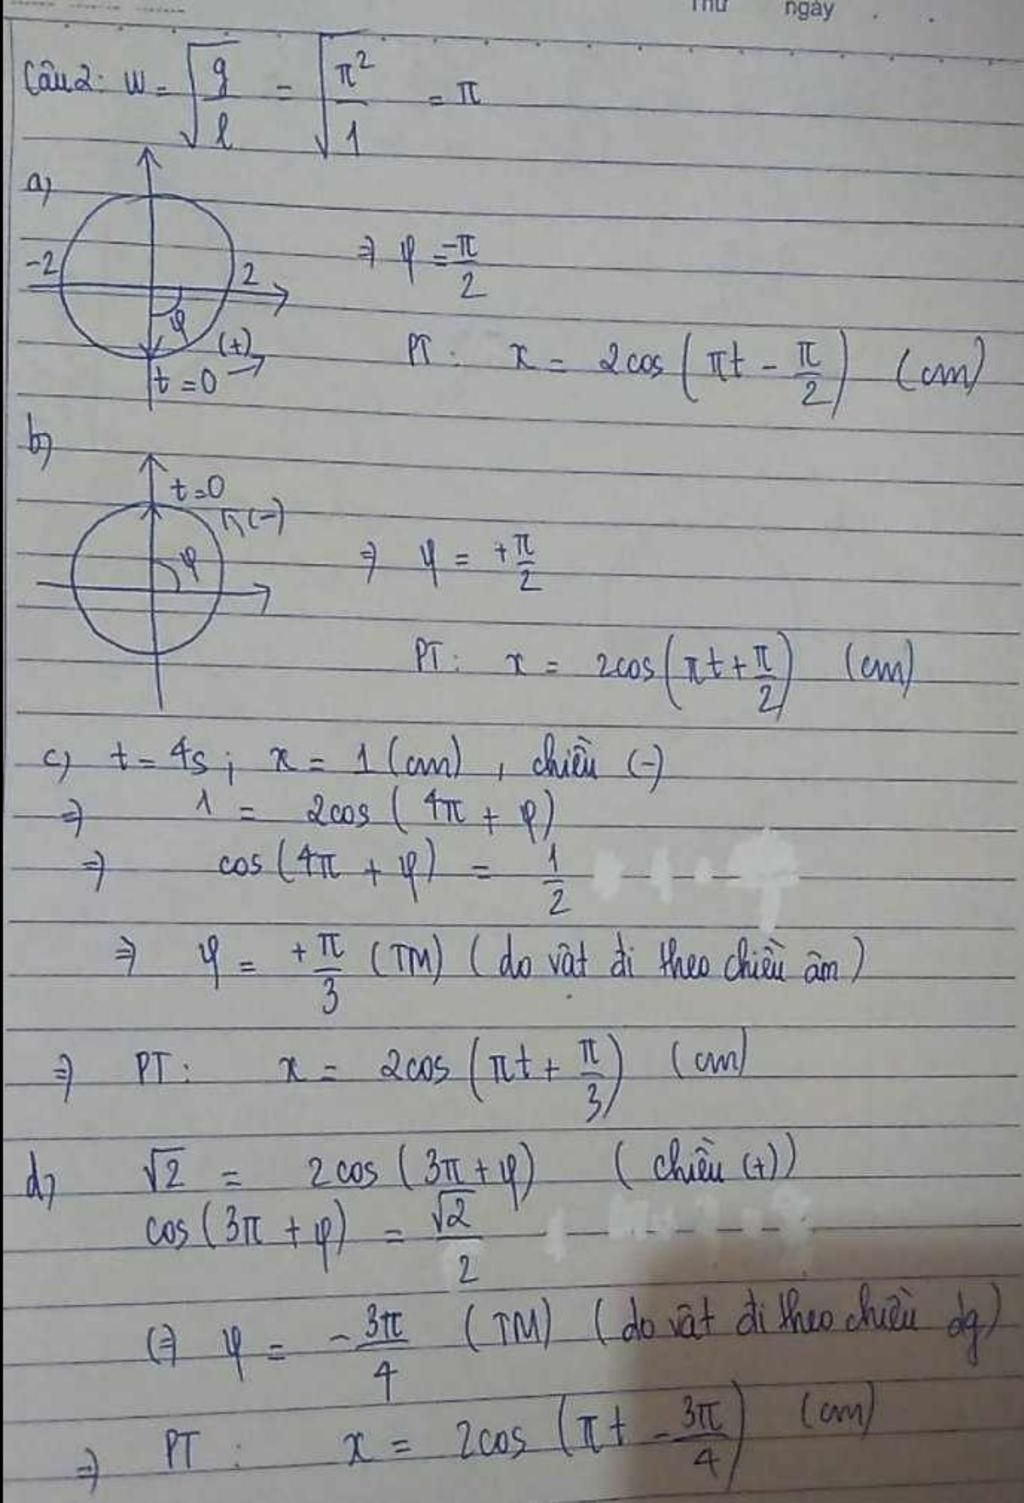 Thứ ngày
Câu 2: w = √(g/l) = √(π²/1) = π
a)
-2 2
φ
(+)
t = 0
⇒ φ = -π/2
PT: x = 2cos(πt - π/2) (cm)
b)
t = 0
(-)
φ
⇒ φ = +π/2
PT: x = 2cos(πt + π/2) (cm)
c) t = 4s; x = 1 (cm), chiều (-)
⇒ 1 = 2cos(4π + φ)
⇒ cos(4π + φ) = 1/2
⇒ φ = +π/3 (TM) (do vật đi theo chiều âm)
⇒ PT: x = 2cos(πt + π/3) (cm)
d) √2 = 2cos(3π + φ) (chiều (+))
cos(3π + φ) = √2/2
(⇒ φ = -3π/4 (TM) (do vật đi theo chiều dg)
⇒ PT: x = 2cos(πt - 3π/4) (cm)